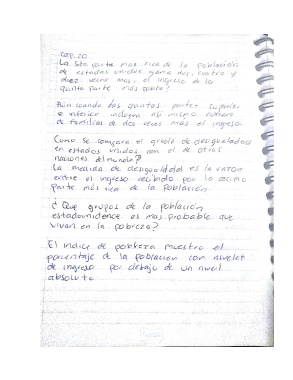 Cap. 20
La 5ta parte mas rica de la población
de estados unidos gana dos, cuatro y
diez veces mas, el ingreso de la
quinta parte más pobre?
Aún cuando las quintas partes superior
e inferior incluyan el mismo número
de familias de dos veces más el ingreso.
Como se compara el grado de desigualdad
en estados unidos con el de otras
naciones del mundo?
La medida de desigualdad es la razón
entre el ingreso recibido por la décima
parte más rica de la población
¿Que grupos de la población
estadounidence es mas probable que
vivan en la pobreza?
El indice de pobreza muestra el
porcentaje de la población con niveles
de ingreso por debajo de un nivel
absoluto